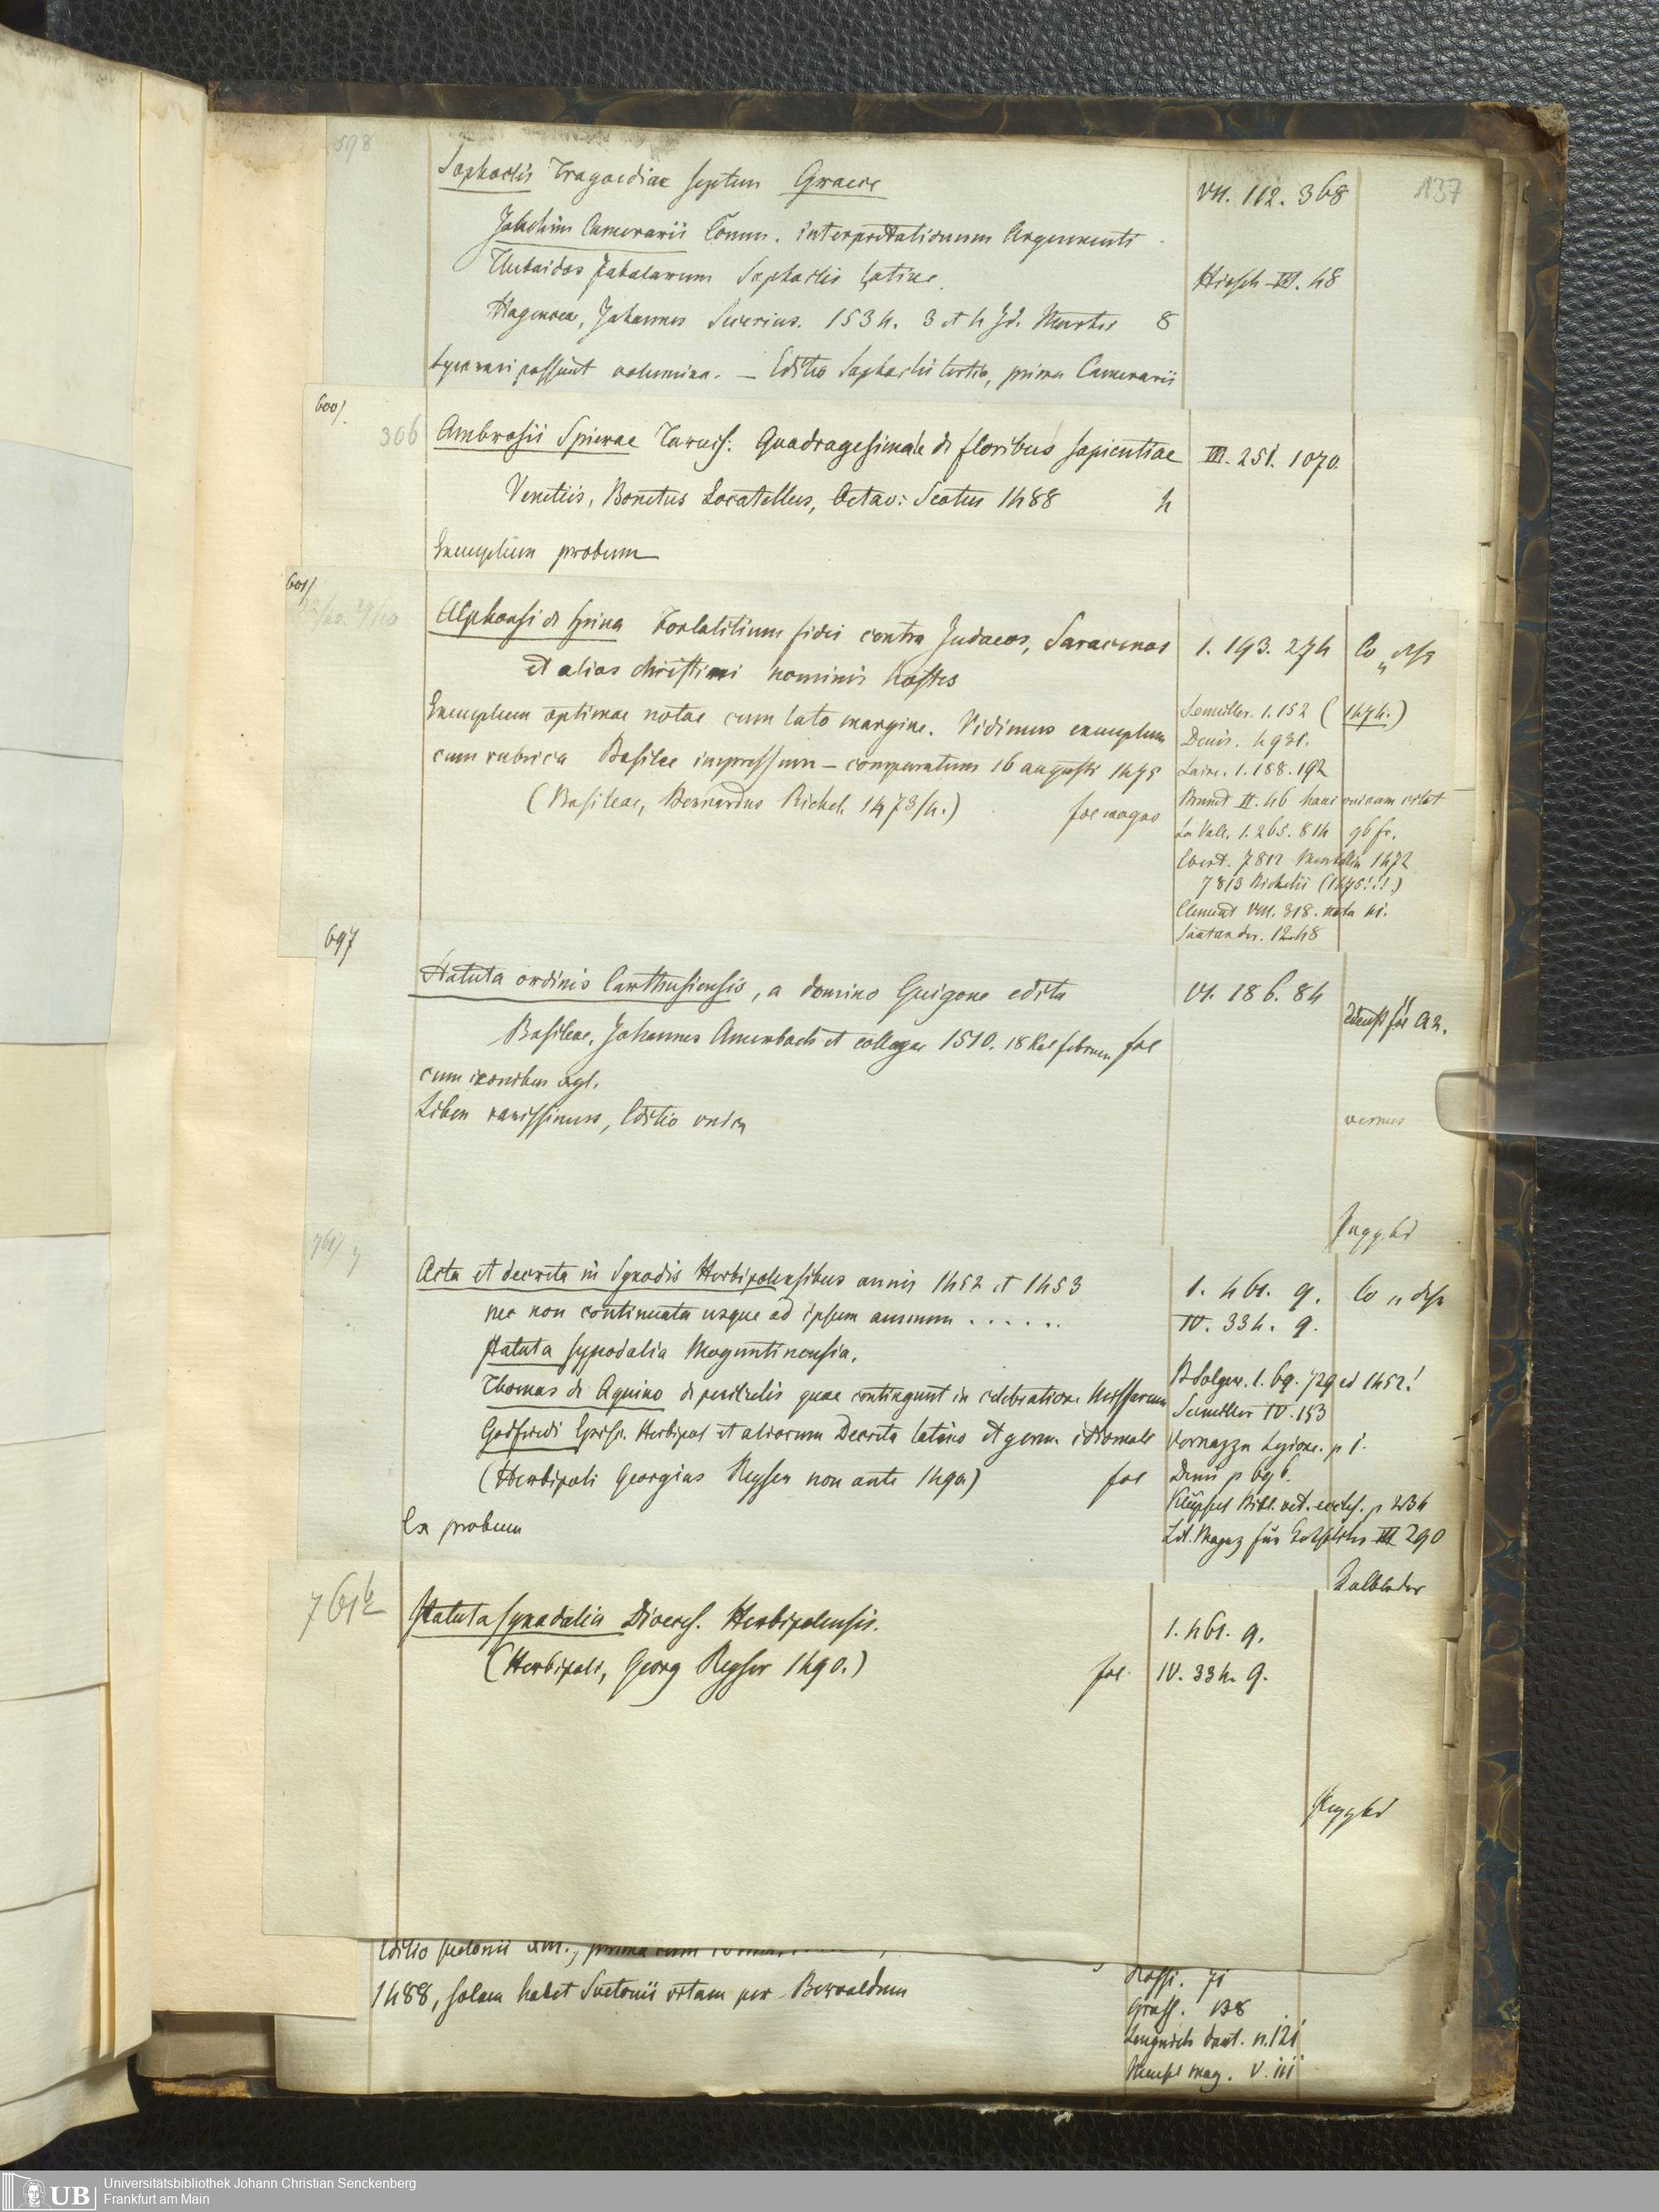 598
137
Sophoclis Tragoediae septem Graece
VII. 112. 368
Joachimi Camerarii Comm. interpretationum Argumenti
Thebaidos fabularum Sophoclis latine.
Hirsch III. 48
Hagenoae, Johannes Secerius. 1534. 8
possunt volumina. — Editio Sophoclis tertia, prima Camerarii
600/.
306
Ambrosii Spierae Tarvis: Quadragesimale de floribus sapientiae
III. 251. 1070.
Venetiis, Bonetus Locatellus, Octav: Scotus 1488 4
Exemplum probum
601/
Alphonsi de Spina Fortalitium fidei contra Judaeos, Saracenos
1. 193. 274
Co
et alios christiani nominis hostes
Exemplum optimae notae cum lato margine. Vidimus exemplum
Seemiller. 1. 152 (1474.)
Denis. 4931.
cum rubrica Basilee impressum — comparatum 16 augusti 1475
Laire. 1. 188. 192
(Basileae, Bernardus Richel. 1473/4.) fol magno
Brunet II. 46 hanc unicam citat
La Vall. 1. 265. 814 96 fr.
Ebert. 7812 Mentelin 1472
7813 Richelii (1475!!!)
Clement VIII. 318. nota 41.
Santander. 1248
697
Statuta ordinis Carthusiensis, a domino Guigone edita
VI. 186. 84
Basileae, Johannes Amerbach et collegae 1510. 18 Kal februar fol
cum iconibus xyl.
Liber rarissimus, Editio unica
761/
Acta et decreta in Synodis Herbipolensibus annis 1452 et 1453
1. 461. 9.
Co
nec non continuata usque ad ipsum annum . . . . . .
IV. 334. 9.
Statuta synodalia Moguntinensia.
Thomas de Aquino de periculis quae contingunt in celebratione Missarum
B Solger. 1. 69. 729 ed 1452!
Seemiller IV. 153
Godfridi Episc. Herbipol et aliorum Decreta latino et germ. idiomate
Vernazza Lezione. p 1.
(Herbipoli Georgius Reyser non ante 1490) fol
Denis p 696.
Klüpfel Bibl. vet. eccles. p 234
Ex probum
Lit. Magaz für III 290
761b
Statuta synodalia Dioeces. Herbipolensis.
1. 461. 9.
(Herbipoli, Georg Reyser 1490.) fol
IV. 334. 9.
Editio Suetonii
1488, solam habet Suetonii vitam per Beroaldum
Rossi. 71
Grass. 138
Lengnich n. 121
mag. V. 111
UB Universitätsbibliothek Johann Christian Senckenberg
Frankfurt am Main